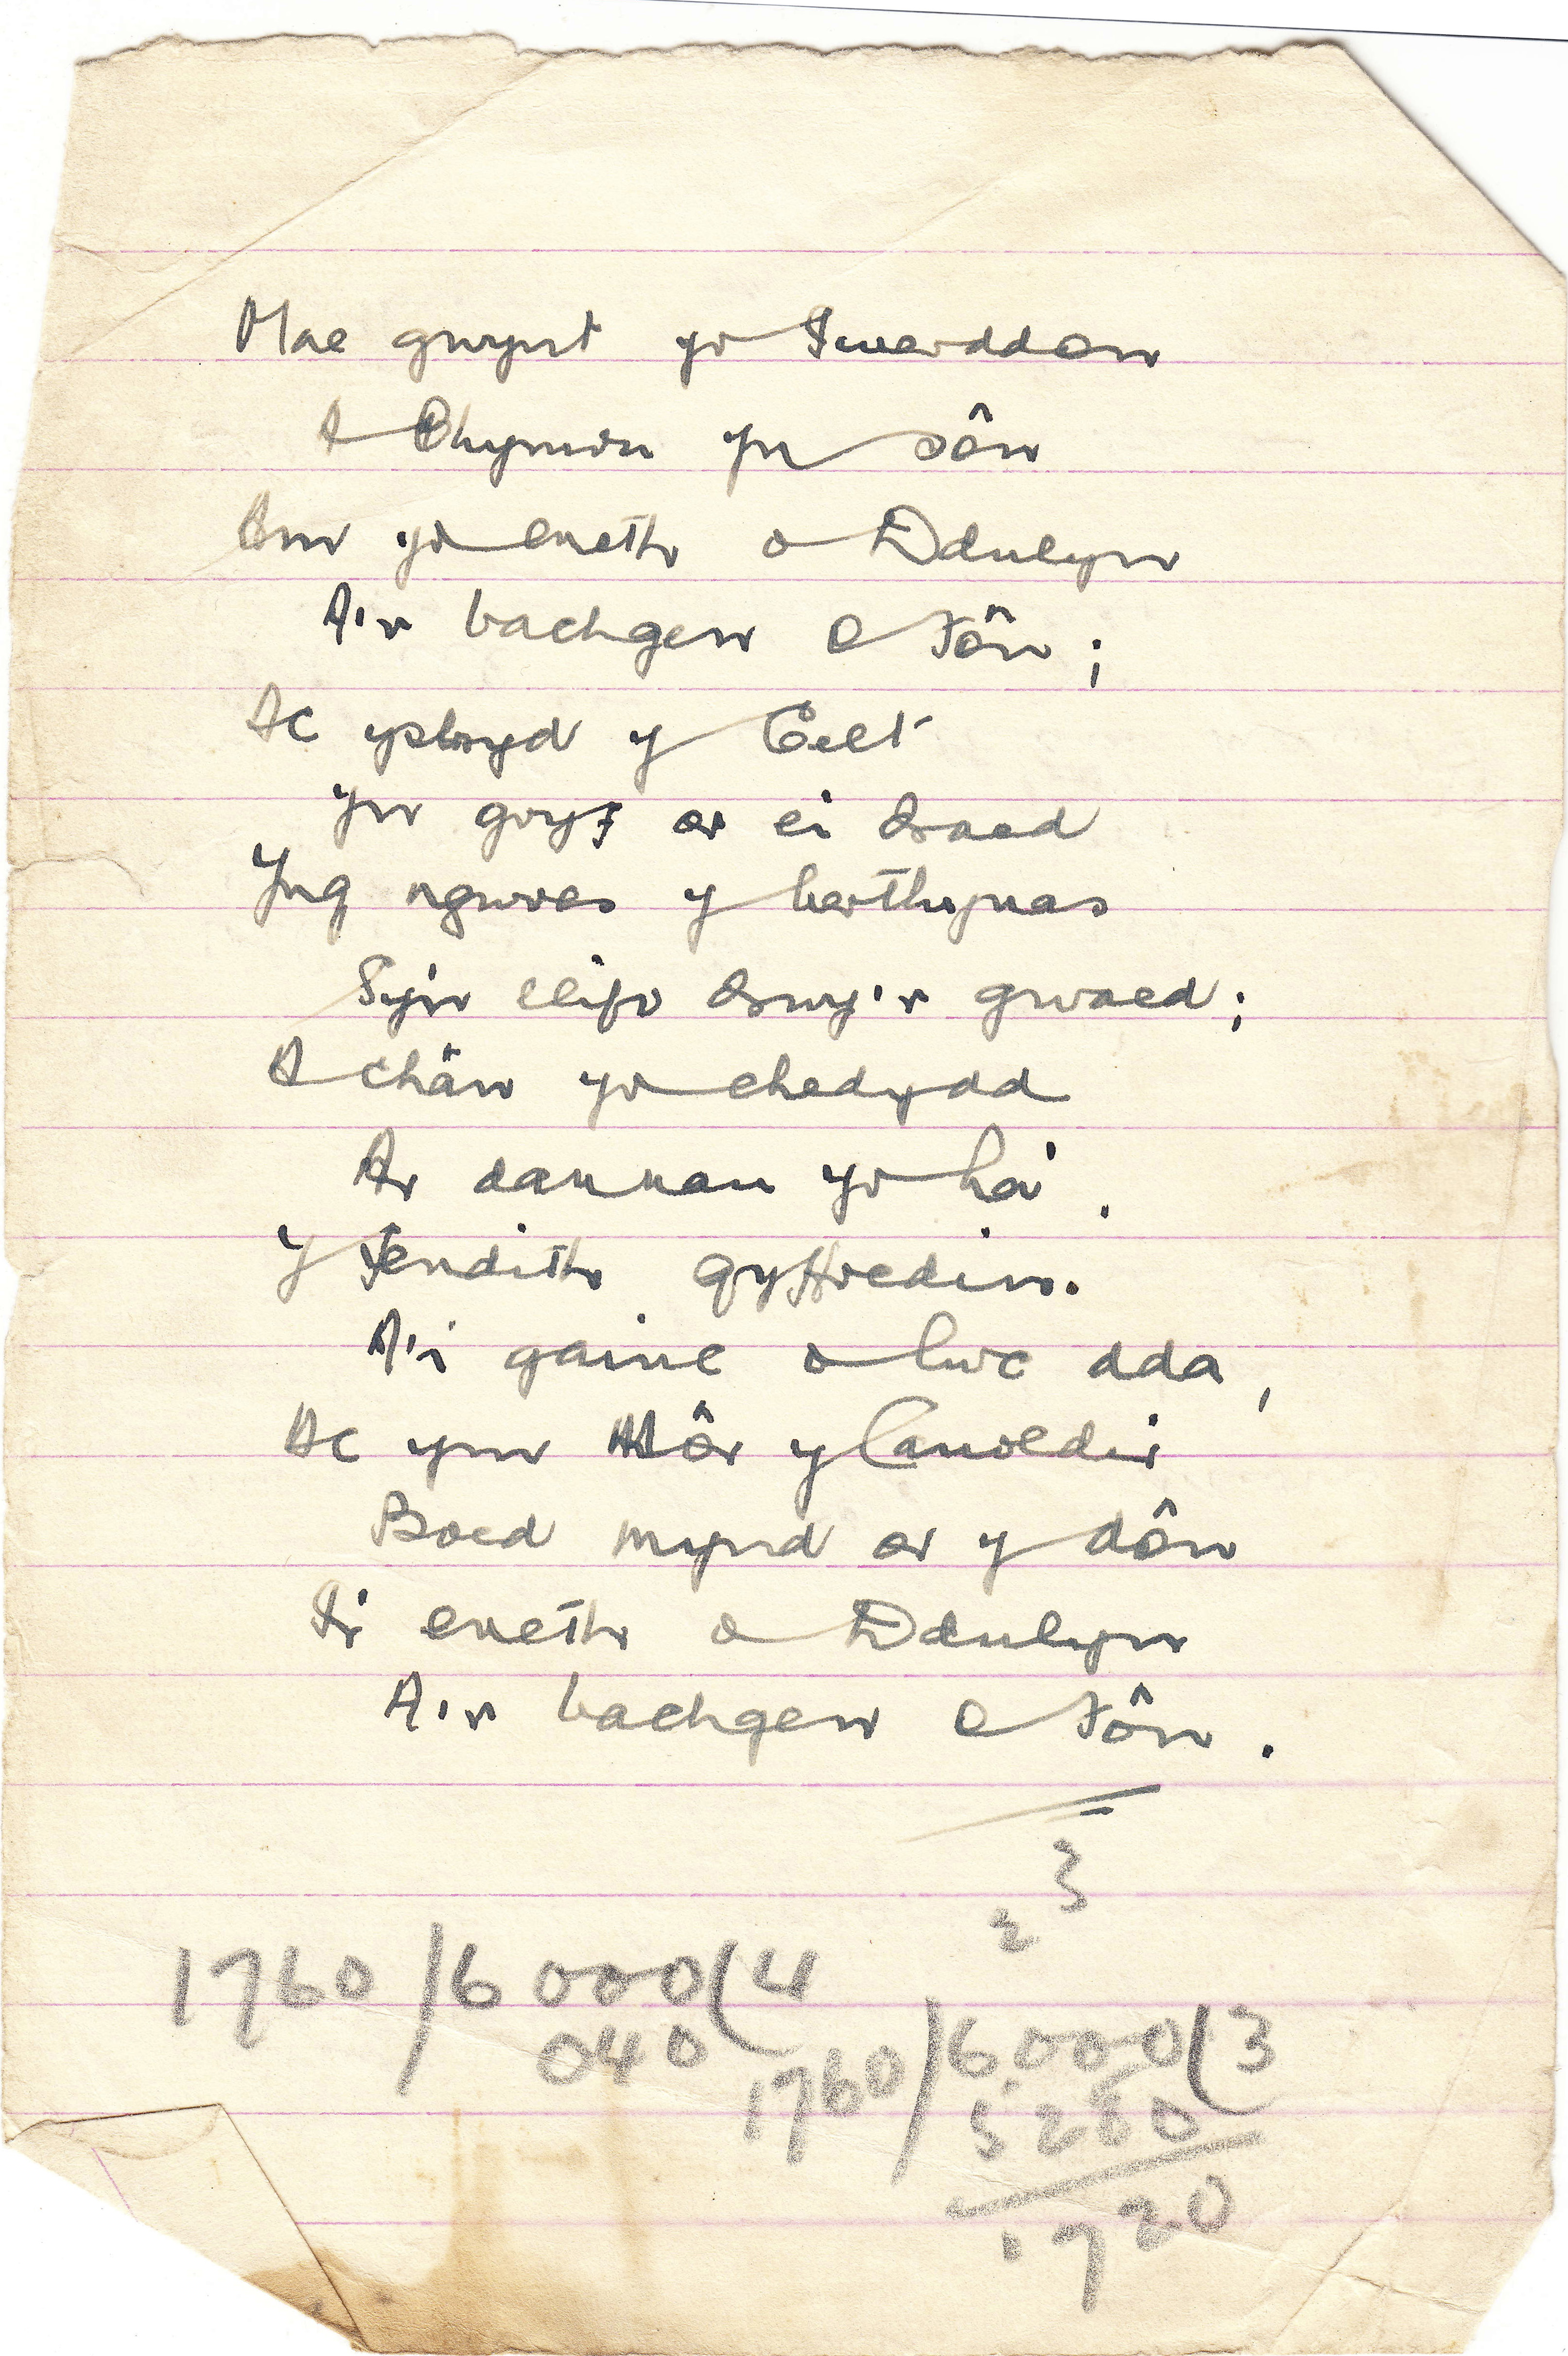 Mae gwynt yr Iwerddon
A Chymru yn sôn
Am yr eneth o Ddulyn
A'r bachgen o Fôn;
Ac ysbryd y Celt
Yn gryf ar ei draed
Yng ngwres y berthynas
Sy'n llifo drwy'r gwaed;
A chân yr ehedydd
Ar dannau yr ha',
Y fendith gyffredin.
A'i gainc o lwc dda,
Ac ym Môr y Canoldir
Boed mynd ar y dôn
I'r eneth o Ddulyn
A'r bachgen o Fôn.
3
2
1760/6000(4
040
1760/6000(3
5280
1720